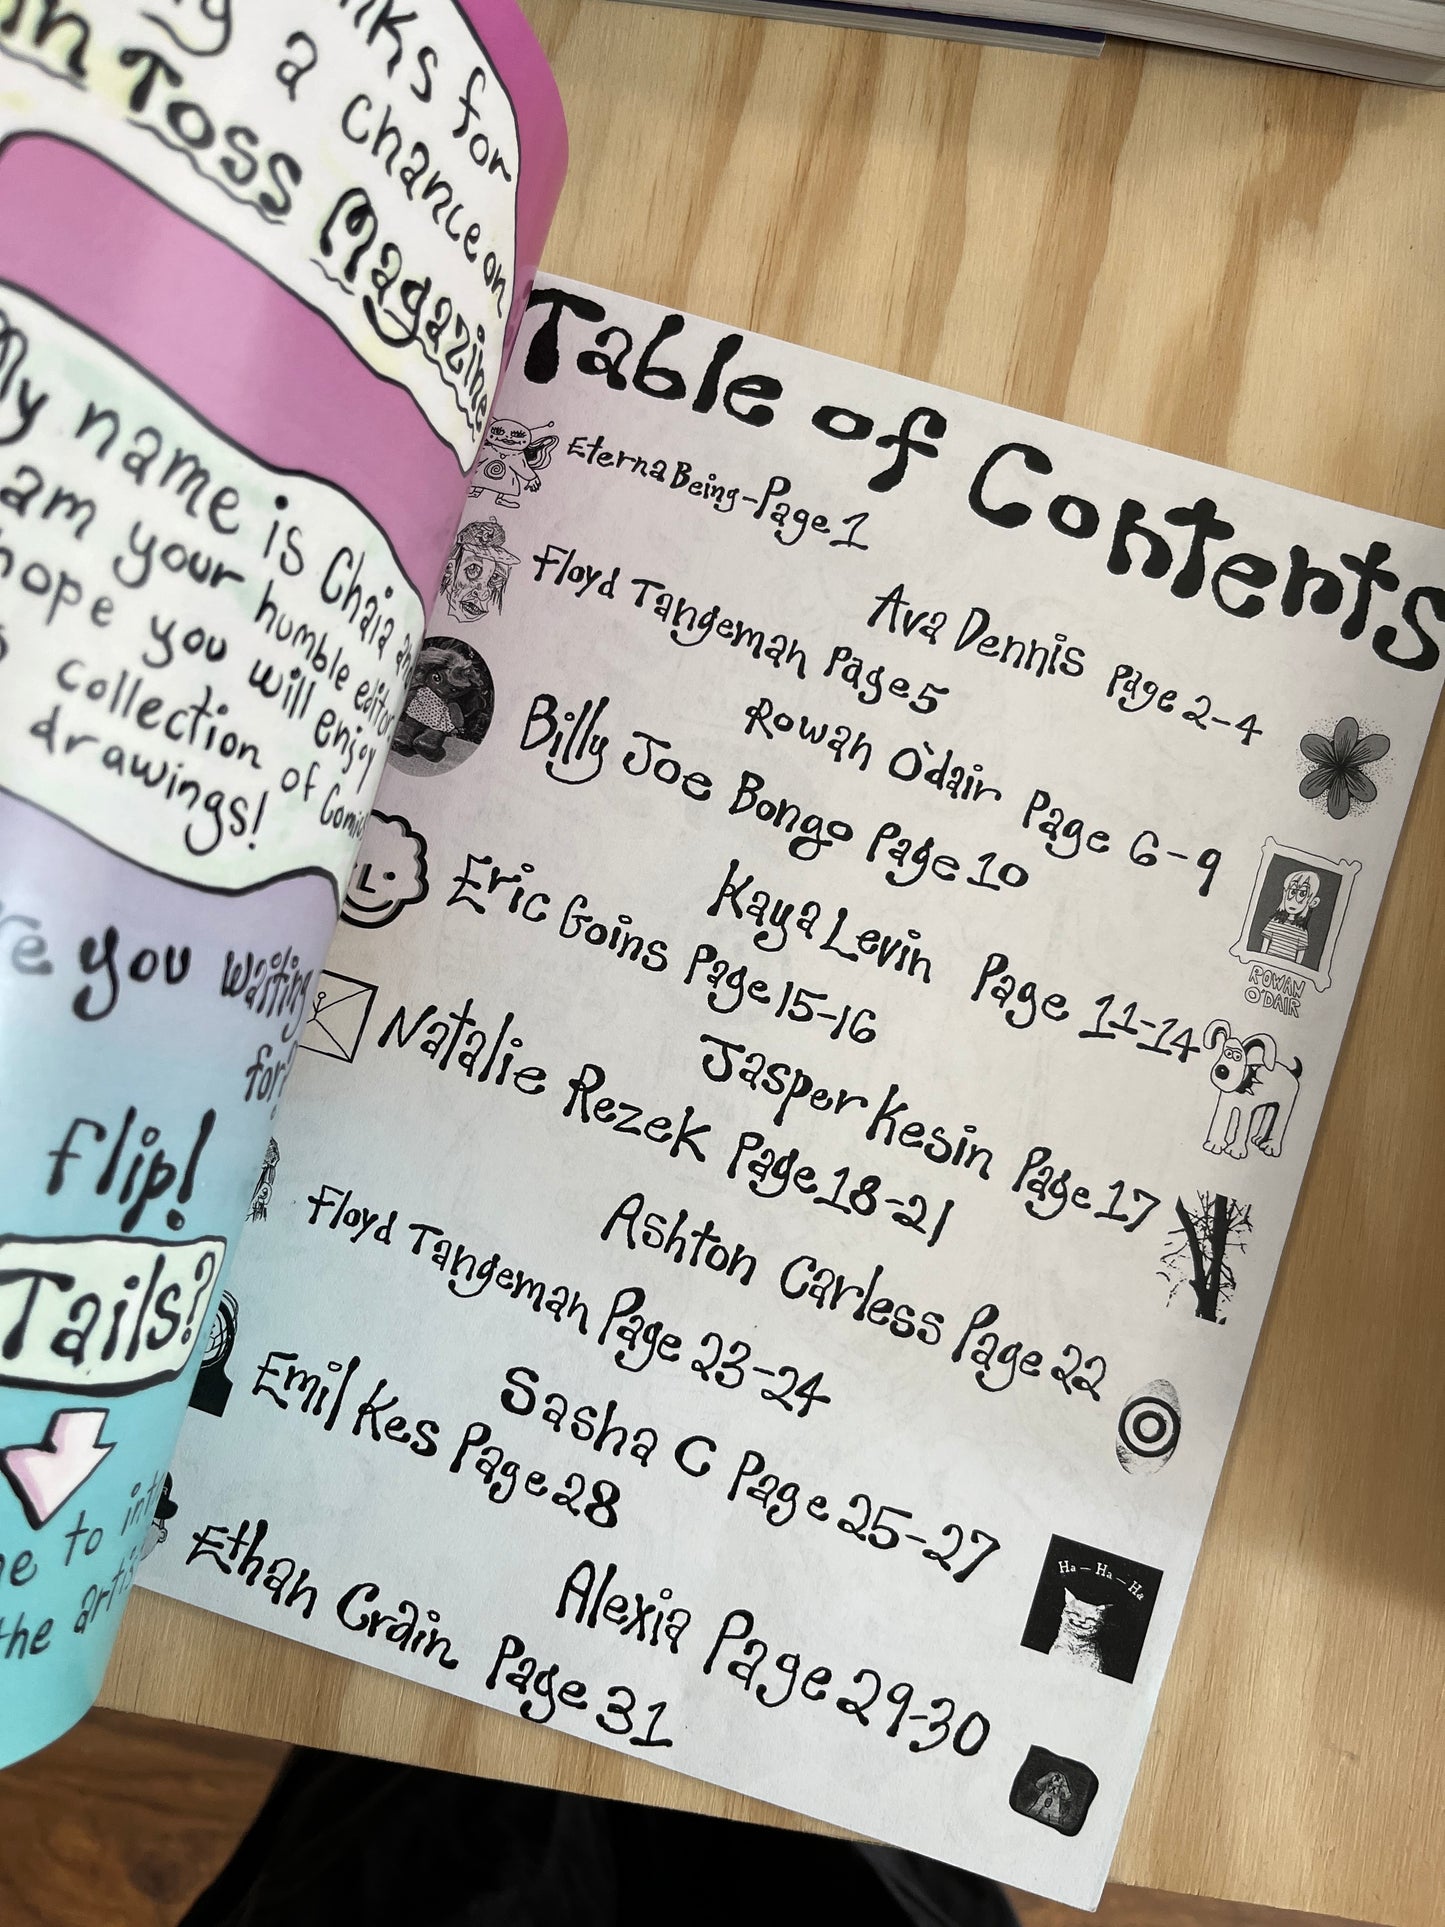 nks for
a chance on
Toss Magazine
My name is Chaia an
am your humble editor
hope you will enjoy
collection of Comic
drawings!
re you waiting
for?
flip!
Tails?
to int
the artis
Table of Contents
Eterna Being-Page 1
Ava Dennis Page 2-4
Floyd Tangeman Page 5
Rowan O'dair Page 6-9
Billy Joe Bongo Page 10
Kaya Levin Page 11-14
Eric Goins Page 15-16
Jasper Kesin Page 17
Natalie Rezek Page 18-21
Ashton Carless Page 22
Floyd Tangeman Page 23-24
Sasha C Page 25-27
Emil Kes Page 28
Alexia Page 29-30
Ethan Crain Page 31
ROWAN
O'DAIR
Ha — Ha — Ha